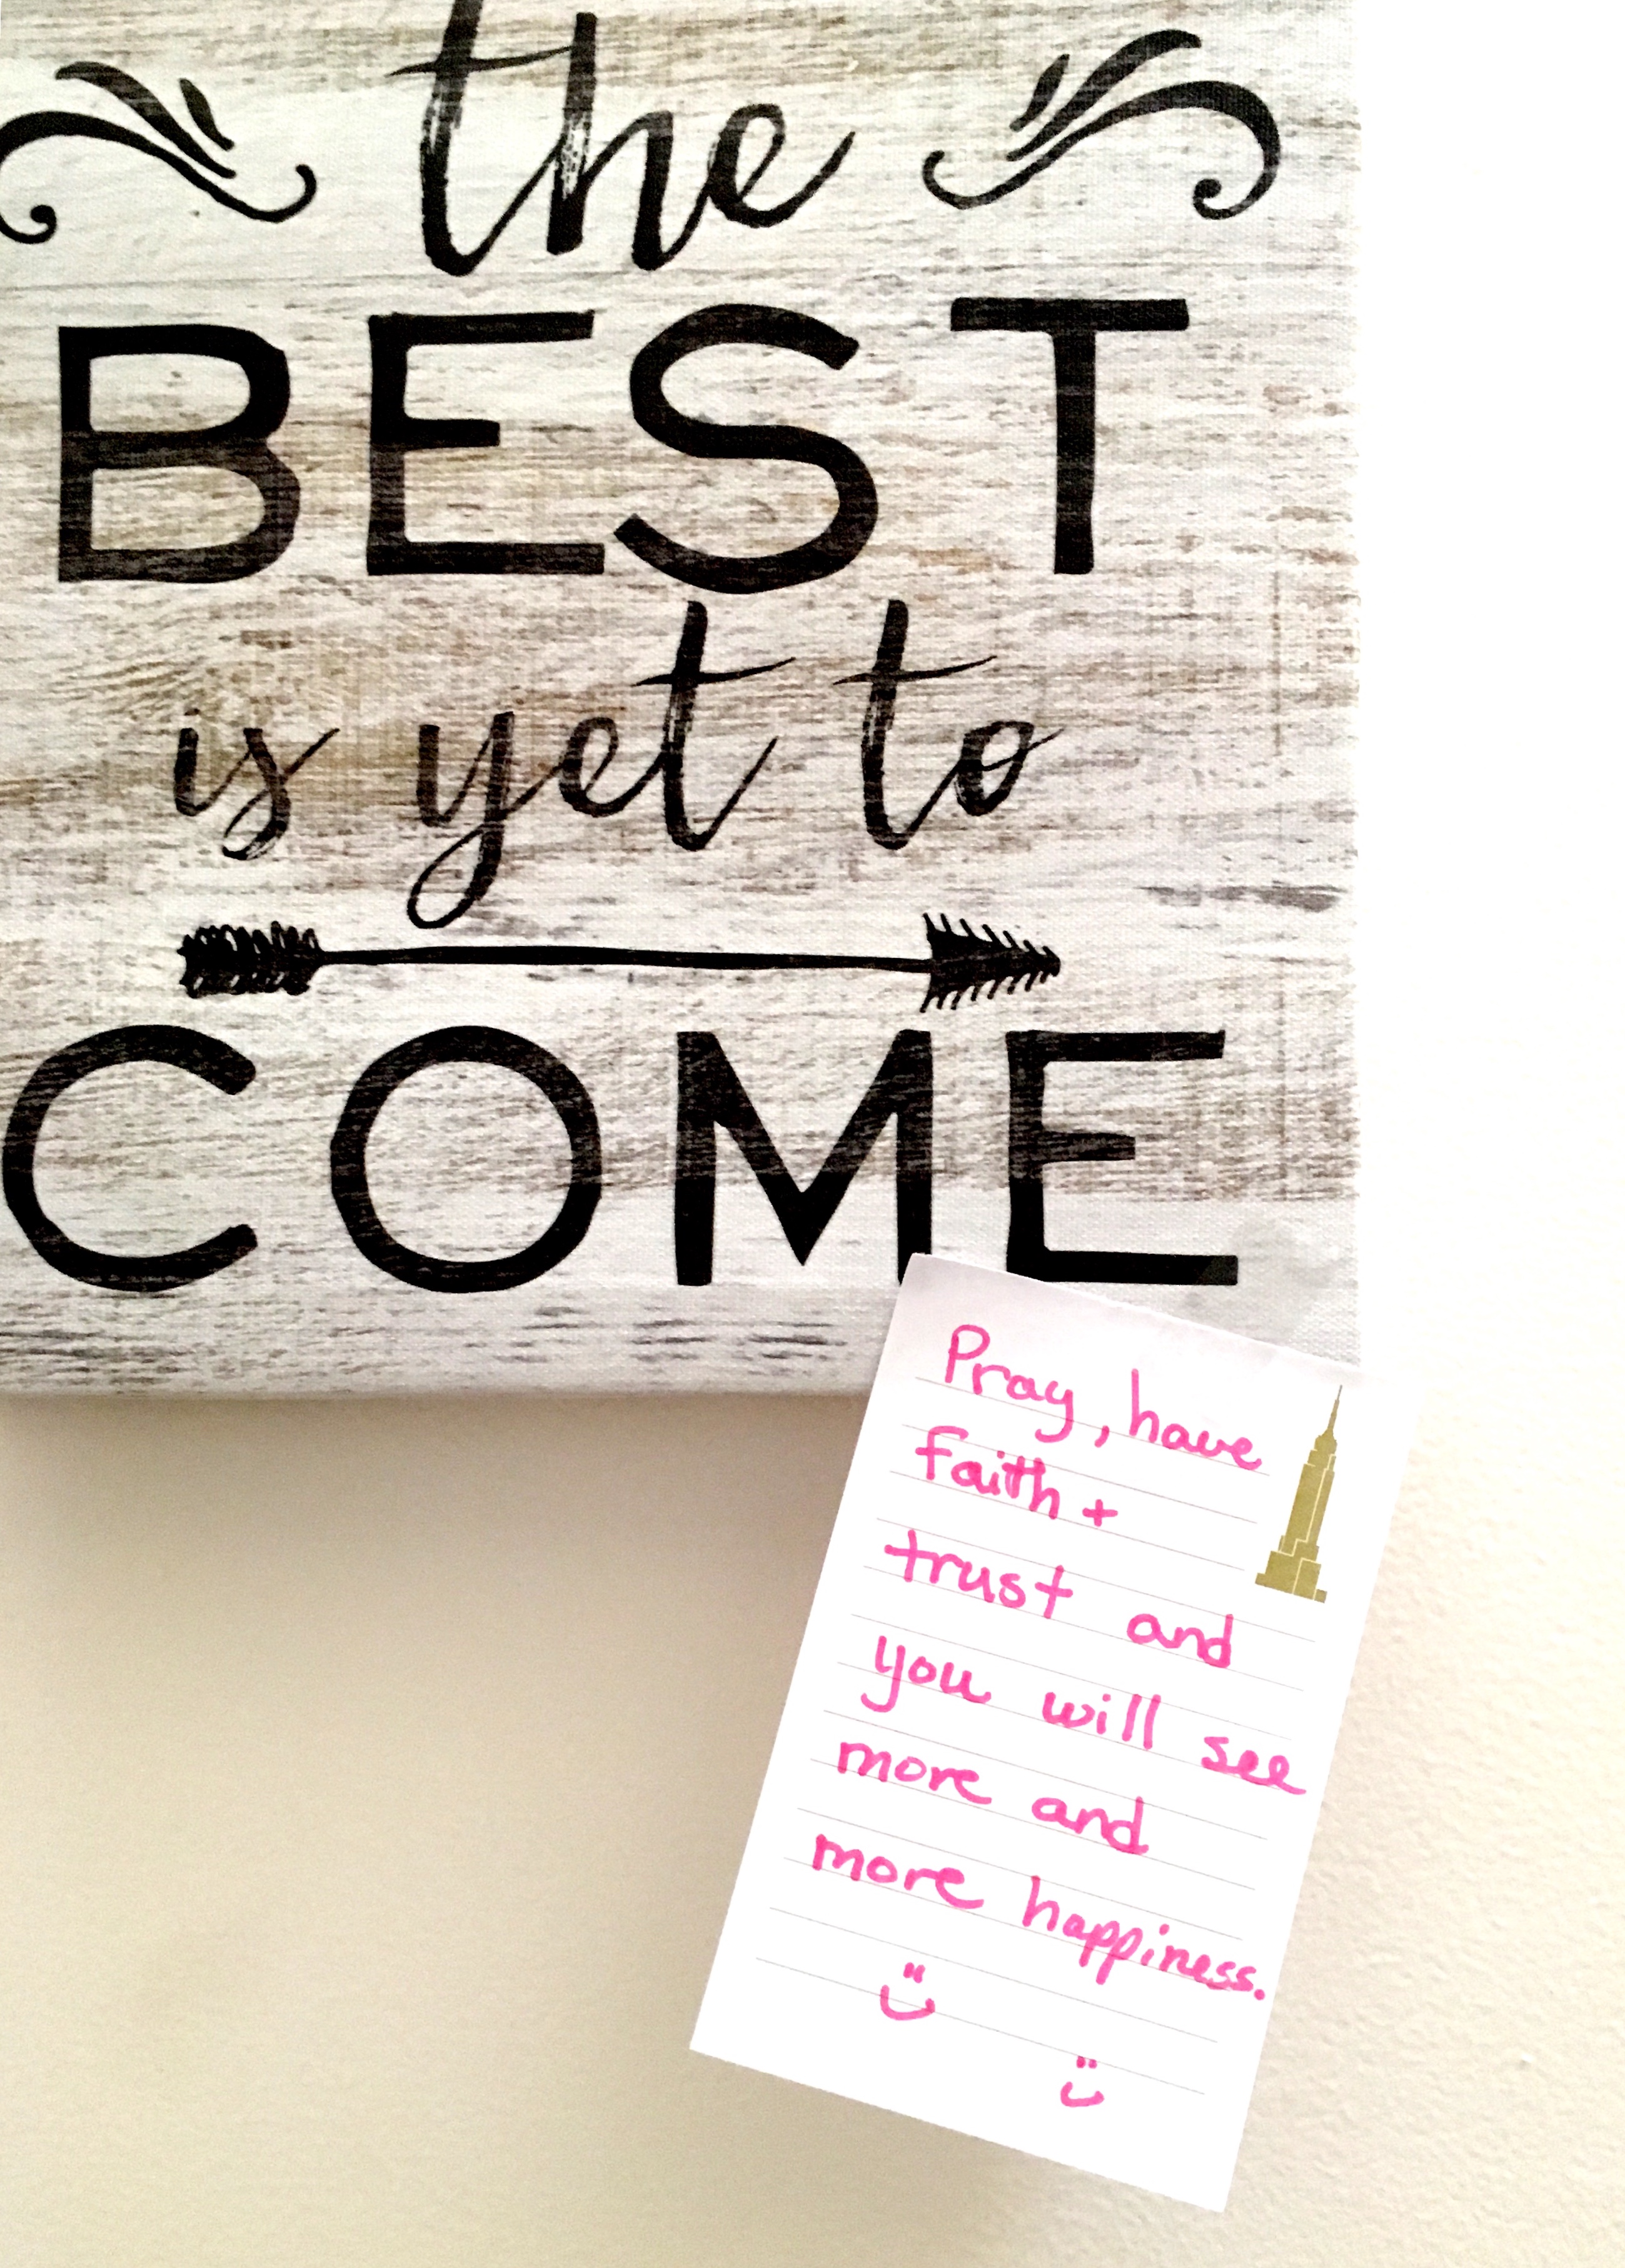 the
BEST
is yet to
COME
Pray, have
faith +
trust and
you will see
more and
more happiness.